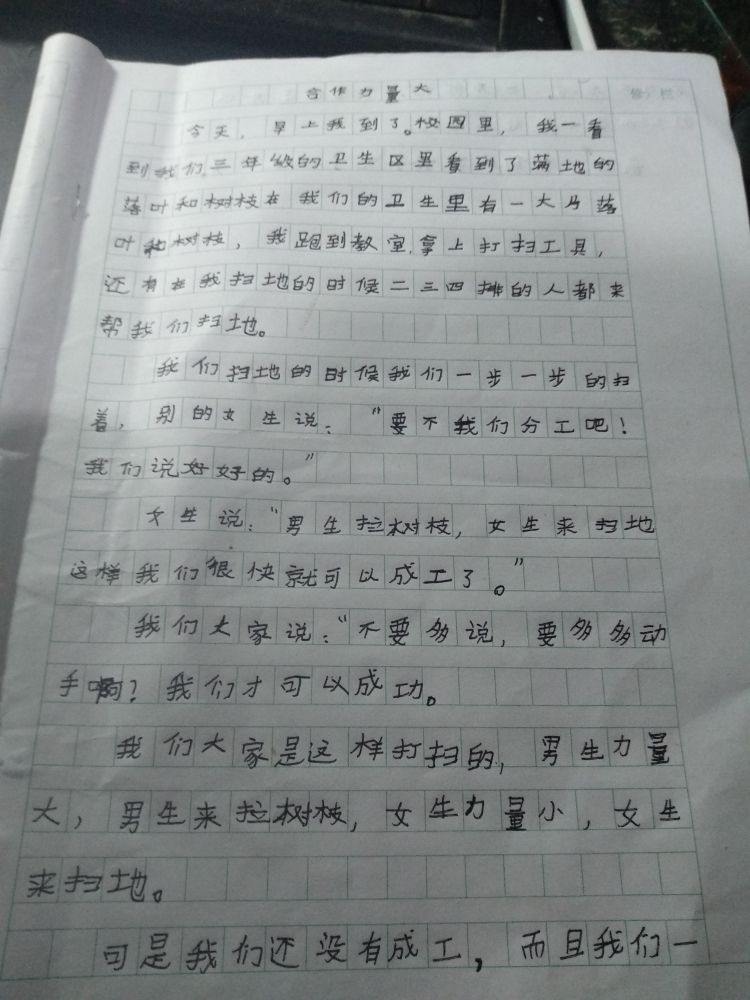 合作力量大
今天，早上我到了。校园里，我一看
到我们三年级的卫生区里看到了满地的
落叶和树枝在我们的卫生里有一大片落
叶和树枝，我跑到教室，拿上打扫工具，
还有在我扫地的时候二三四排的人都来
帮我们扫地。
我们扫地的时候我们一步一步的扫
着，别的女生说：“要不我们分工吧！
我们说好好的。”
女生说：“男生拉树枝，女生来扫地
这样我们很快就可以成工了。”
我们大家说：“不要多说，要多多动
手啊？我们才可以成功。
我们大家是这样打扫的，男生力量
大，男生来拉树枝，女生力量小，女生
来扫地。
可是我们还没有成工，而且我们一